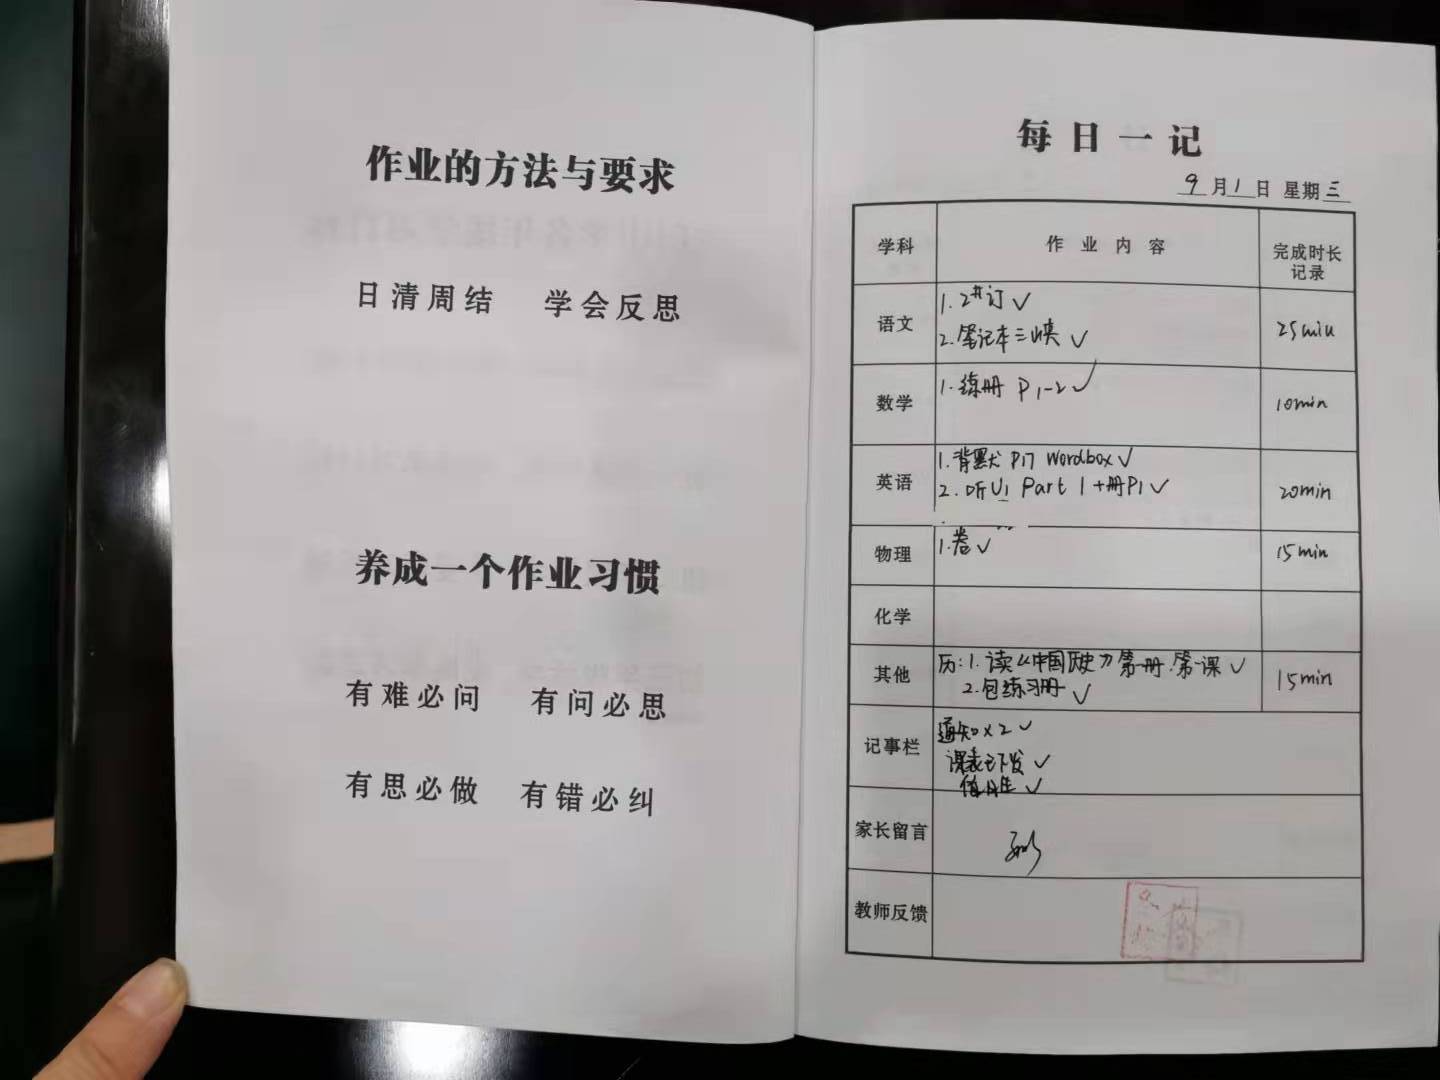 作业的方法与要求
日清周结 学会反思
养成一个作业习惯
有难必问 有问必思
有思必做 有错必纠
每日一记
9月1日 星期三
学科 作业内容 完成时长记录
语文 1. 2#订✓ 25min
2. 笔记本三峡✓
数学 1. 练册 P1-2✓ 10min
英语 1. 背默 P17 Wordbox✓ 20min
2. 听U1 Part 1+册P1✓
物理 1. 卷✓ 15min
化学
其他 历:1. 读《中国历史》第一册.第一课✓ 15min
2. 包练习册✓
记事栏 通知×2✓
课表已下发✓
值日生✓
家长留言
教师反馈